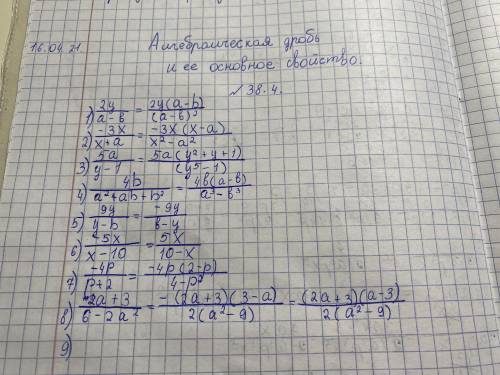 16.04.21 Алгебраическая дробь
и ее основное свойство.
№38.4.
1) 2y/(a-b) = 2y(a-b)/(a-b)²
2) -3x/(x+a) = -3x(x-a)/(x²-a²)
3) 5a/(y-1) = 5a(y²+y+1)/(y³-1)
4) 4b/(a²+ab+b²) = 4b(a-b)/(a³-b³)
5) 9y/(y-b) = -9y/(b-y)
6) -5x/(x-10) = 5x/(10-x)
7) -4p/(p+2) = -4p(2-p)/(4-p²)
8) (2a+3)/(6-2a) = -(2a+3)(3-a)/2(a²-9) = (2a+3)(a-3)/2(a²-9)
9)